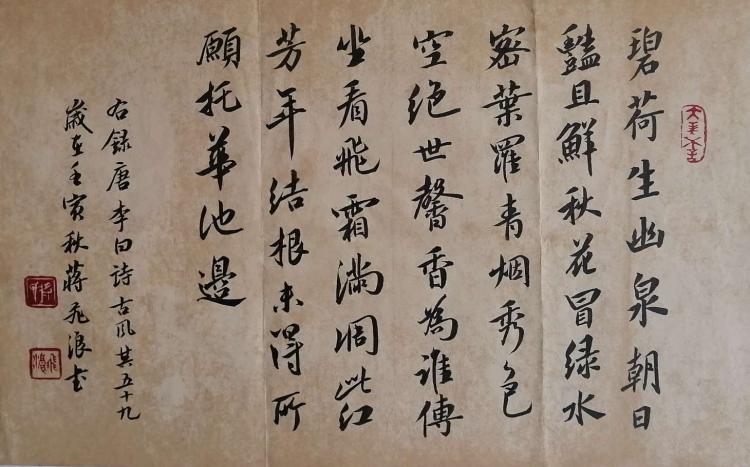 碧荷生幽泉朝日
豔且鮮秋花冒绿水
密葉羅青烟秀色
空绝世馨香為誰傳
坐看飛霜滿凋此红
芳年结根未得所
願托華池邊
右録唐李白詩古风其五十九
歲在壬寅秋蔣飛浪书